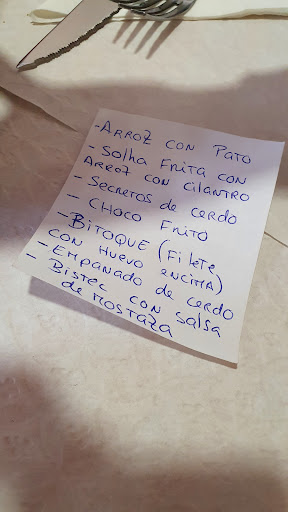 - ARROZ CON PATO
- SOLHA FRITA CON
ARROZ CON CILANTRO
- SECRETOS DE CERDO
- CHOCO FRITO
- BITOQUE (FILETE
CON HUEVO ENCIMA)
- EMPANADO DE CERDO
- BISTEC CON SALSA
DE MOSTAZA